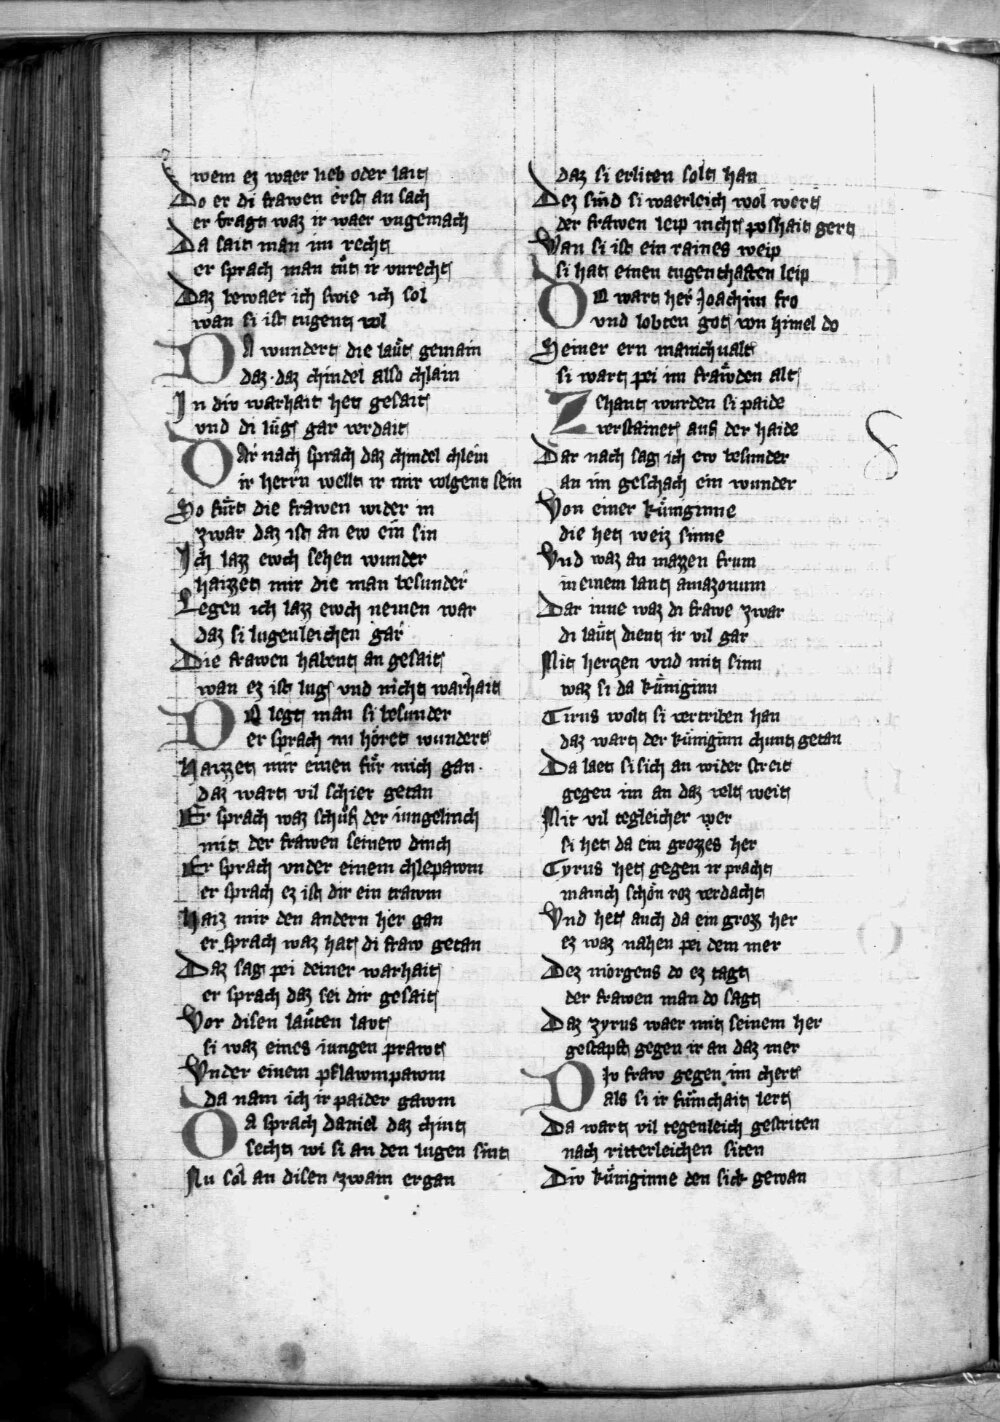 wem ez waer lieb oder lait
Do er di frawen erst an sach
er fragt waz ir waer vngemach
Da sait man im recht
er sprach man tuͤt ir vnrecht
Daz bewaer ich swie ich sol
wan si ist tugent vol
DA wundert die laͤut gemain
daz daz chindel also chlain
In div warhait het gesait
vnd di luͤgs gar verdait
DAr nach sprach daz chindel chlein
ir herrn wellt ir mir volgent sein
So fuͤrt die frawen wider in
zwar daz ist an ew ein sin
Ich lazz ewch sehen wunder
haizzet mir die man besunder
Legen ich lazz ewch nemen war
daz si lugenleichen gar
Die frawen habent an gesait
wan ez ist lugs vnd nicht warhait
DO legt man si besunder
er sprach nu hoͤret wundert
Haizzet mir einen fuͤr mich gan
daz wart vil schier getan
Er sprach waz schuͦf der iungelinch
mit der frawen seinew dinch
Er sprach vnder einem chlepawm
er sprach ez ist dir ein trawm
Haiz mir den andern her gan
er sprach waz hat di fraw getan
Daz sag pei deiner warhait
er sprach daz sei dir gesait
Vor disen laͤuten lavt
si waz eines iungen prawt
Vnder einem pflawmpawm
da nam ich ir paider gawm
DA sprach daniel daz chint
secht wi si an den lugen sint
Nu sol an disen zwain ergan
daz si erliten solt han
Dez sind si waerleich wol wert
der frawen leip nicht poshait gert
Wan si ist ein raines weip
si hat einen tugenthaften leip
DO wart her Joachim fro
vnd lobten got von himel do
Seiner ern manichualt
si wart pei im fraͤwden alt
Zehant wurden si paide
verstainet auf der haide
Dar nach sag ich ew besunder
an im geschach ein wunder
Von einer kuͤniginne
die het weiz sinne
Vnd waz an mazzen frum
in einem lant amazonum
Dar inne waz di frawe zwar
di laͤut dient ir vil gar
Mit hertzen vnd mit sinn
waz si da kuͤniginn
Tirus wolt si vertriben han
daz wart der kuͤniginn chunt getan
Da laet si sich an wider streit
gegen im an daz velt weit
Mit vil tegleicher wer
si het da ein grozzes her
Tyrus het gegen ir pracht
manich schoͤn roz verdacht
Vnd het auch da ein groz her
ez waz nahen pei dem mer
Dez morgens do ez tagt
der frawen man do sagt
Daz zyrus waer mit seinem her
gestapft gegen ir an daz mer
DIv fraw gegen im chert
als si ir kuͤnichait lert
Da wart vil tegenleich gestriten
nach ritterleichen siten
Div kuͤniginne den sick gewan